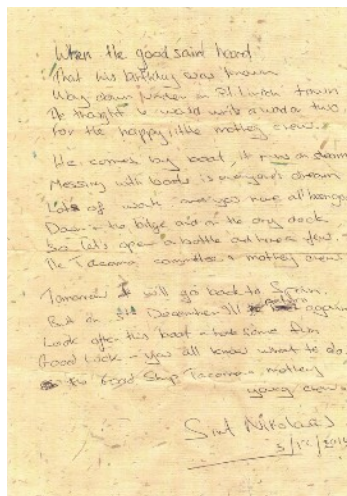 When the good saint heard
That his birthday was known
Way down under in Pt Lincoln town
He thought he would write a word or two
For the happy little motley crew.
He comes by boat, it runs on steam
Messing with boats is everyone's dream
Lots of work and you have all
Down in the bilge and in the dry dock
So let's open a bottle and have a few.
The Tacoma committee & motley crew
Tomorrow I will go back to Spain.
But on 5th December I'll be again
Look after this boat - have some fun
Good Luck - you all know what to do.
the Good Ship Tacoma - motley
young crew
Sint Nikolaas
5/12/2014